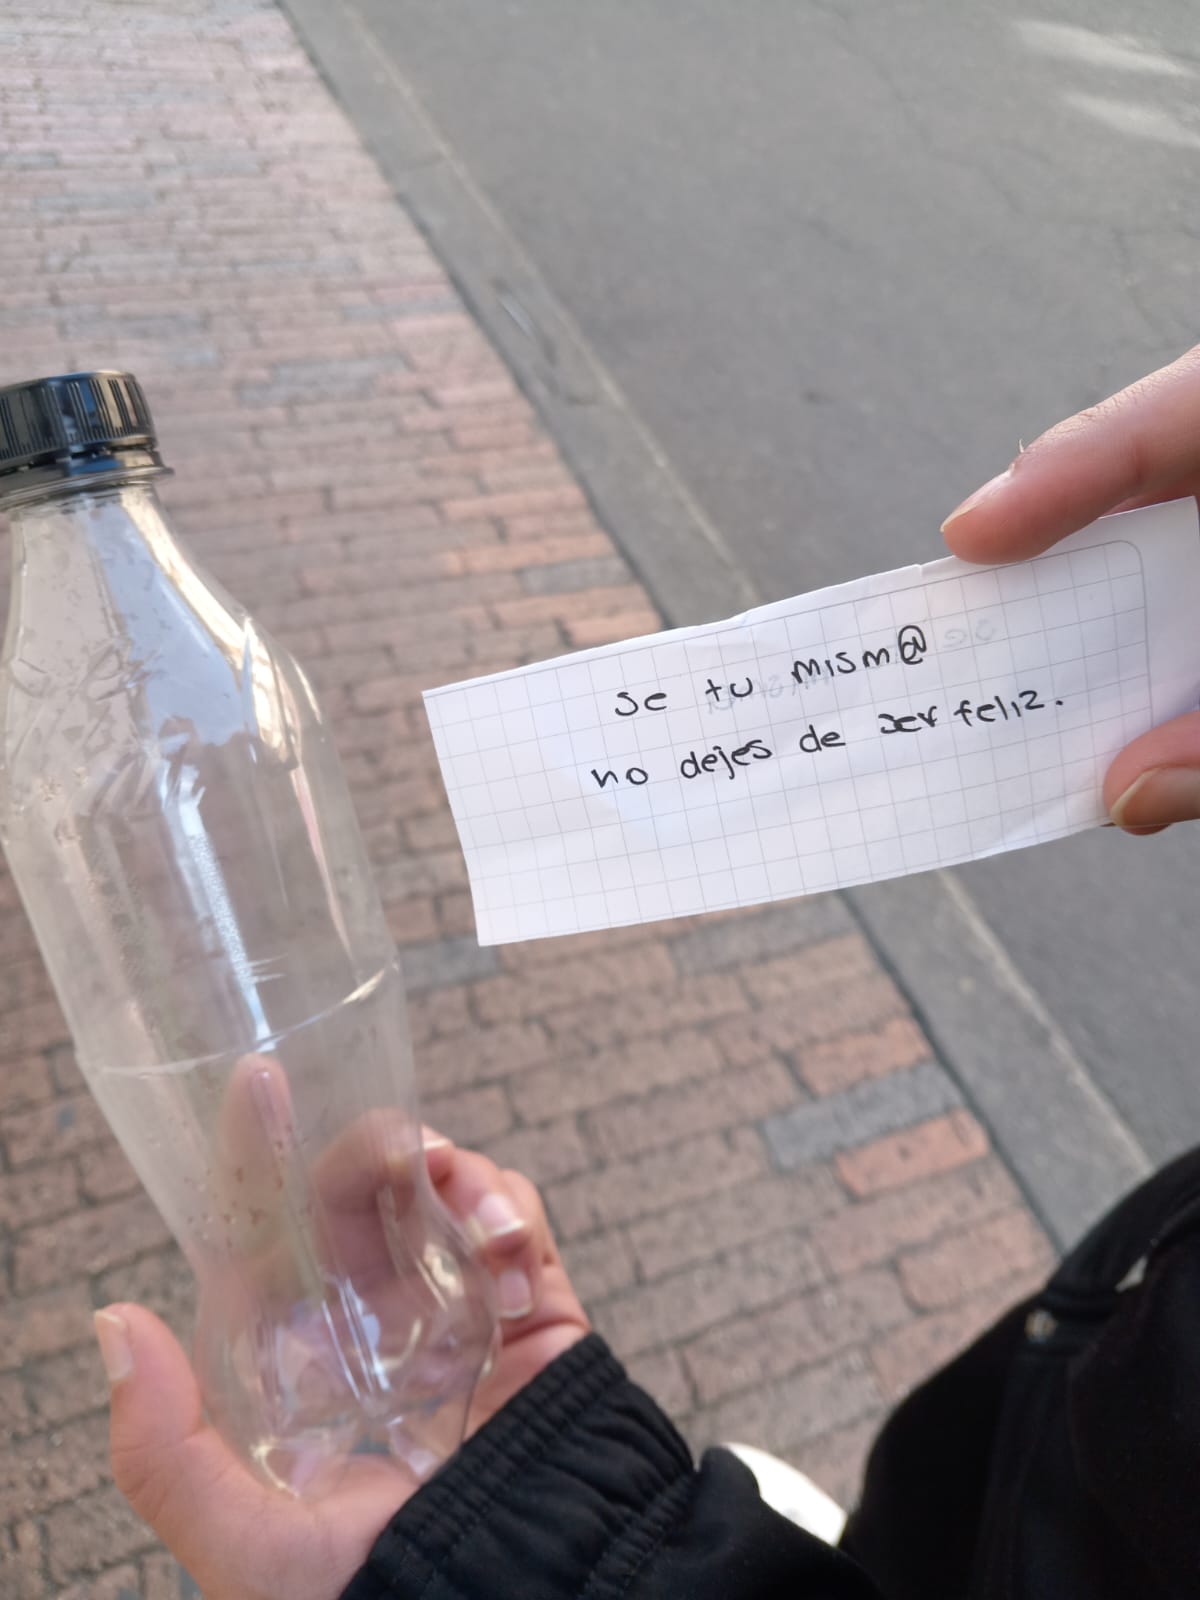 se tu mism@
no dejes de ser feliz.